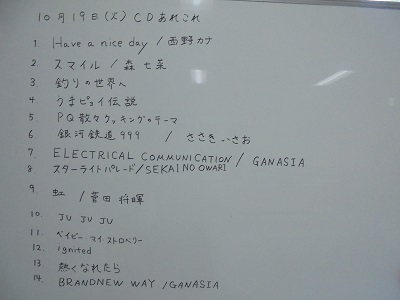 10月19日(火) CDあれこれ
1. Have a nice day / 西野カナ
2. スマイル / 森七菜
3. 釣りの世界へ
4 うまピョイ伝説
5 PQ散々クッキングのテーマ
6. 銀河鉄道999 / ささきいさお
7. ELECTRICAL COMMUNICATION / GANASIA
8 スターライトパレード/SEKAI NO OWARI
9. 虹 / 菅田将暉
10. JU JU JU
11. ベイビー・マイ・ストロベリー
12. ignited
13 熱くなれたら
14. BRANDNEW WAY /GANASIA